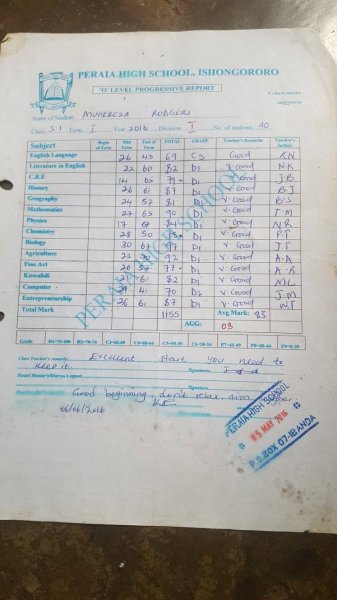 PERAIA HIGH SCHOOL, ISHONGORORO
'O' LEVEL PROGRESSIVE REPORT
Name of Student MUHEREZA RODGERS
Class S.1 Term I Year 2016 Division I No. of students 10
Subject Begin of Term Mid Term End of Term TOTAL GRADE Teacher's Remarks Teacher's Initials
English Language 26 43 69 C3 Good
Literature in English 22 60 82 D1 V. Good N.K
C.R.E 14 D1 V. Good J.B
History 26 61 87 D1 V. Good B.J
Geography 24 57 81 D1 V. Good B.S
Mathematics 27 63 90 D1 V. Good T.M
Physics 17 D1 V. Good N.R
Chemistry 28 50 D1 V. Good
Biology 30 67 97 D1 V. Good J.T
Agriculture 22 70 92 D1 V. Good A.A
Fine Art 20 57 77 D1 V. Good A.R
Kiswahili 21 61 82 D1 V. Good M.L
Computer 29 41 70 D2 V. Good J.M
Entrepreneurship 26 61 87 D1 V. Good W.T
Total Mark 1155 Avg Mark: 83
AGG: 03
Grade D1-75-100 D2-70-74 C3-65-69 C4-60-64 C5-55-59 C6-50-54 P7-45-49 P8-40-44 F9-0-39
PERAIA HIGH SCHOOL
Class Teacher's remarks Excellent start you need to
keep it. Signature
Signature
Good beginning, don't relax, aim higher
06/06/2016
PERAIA HIGH SCHOOL
05 MAY 2016
P.O.BOX 07-IBANDA